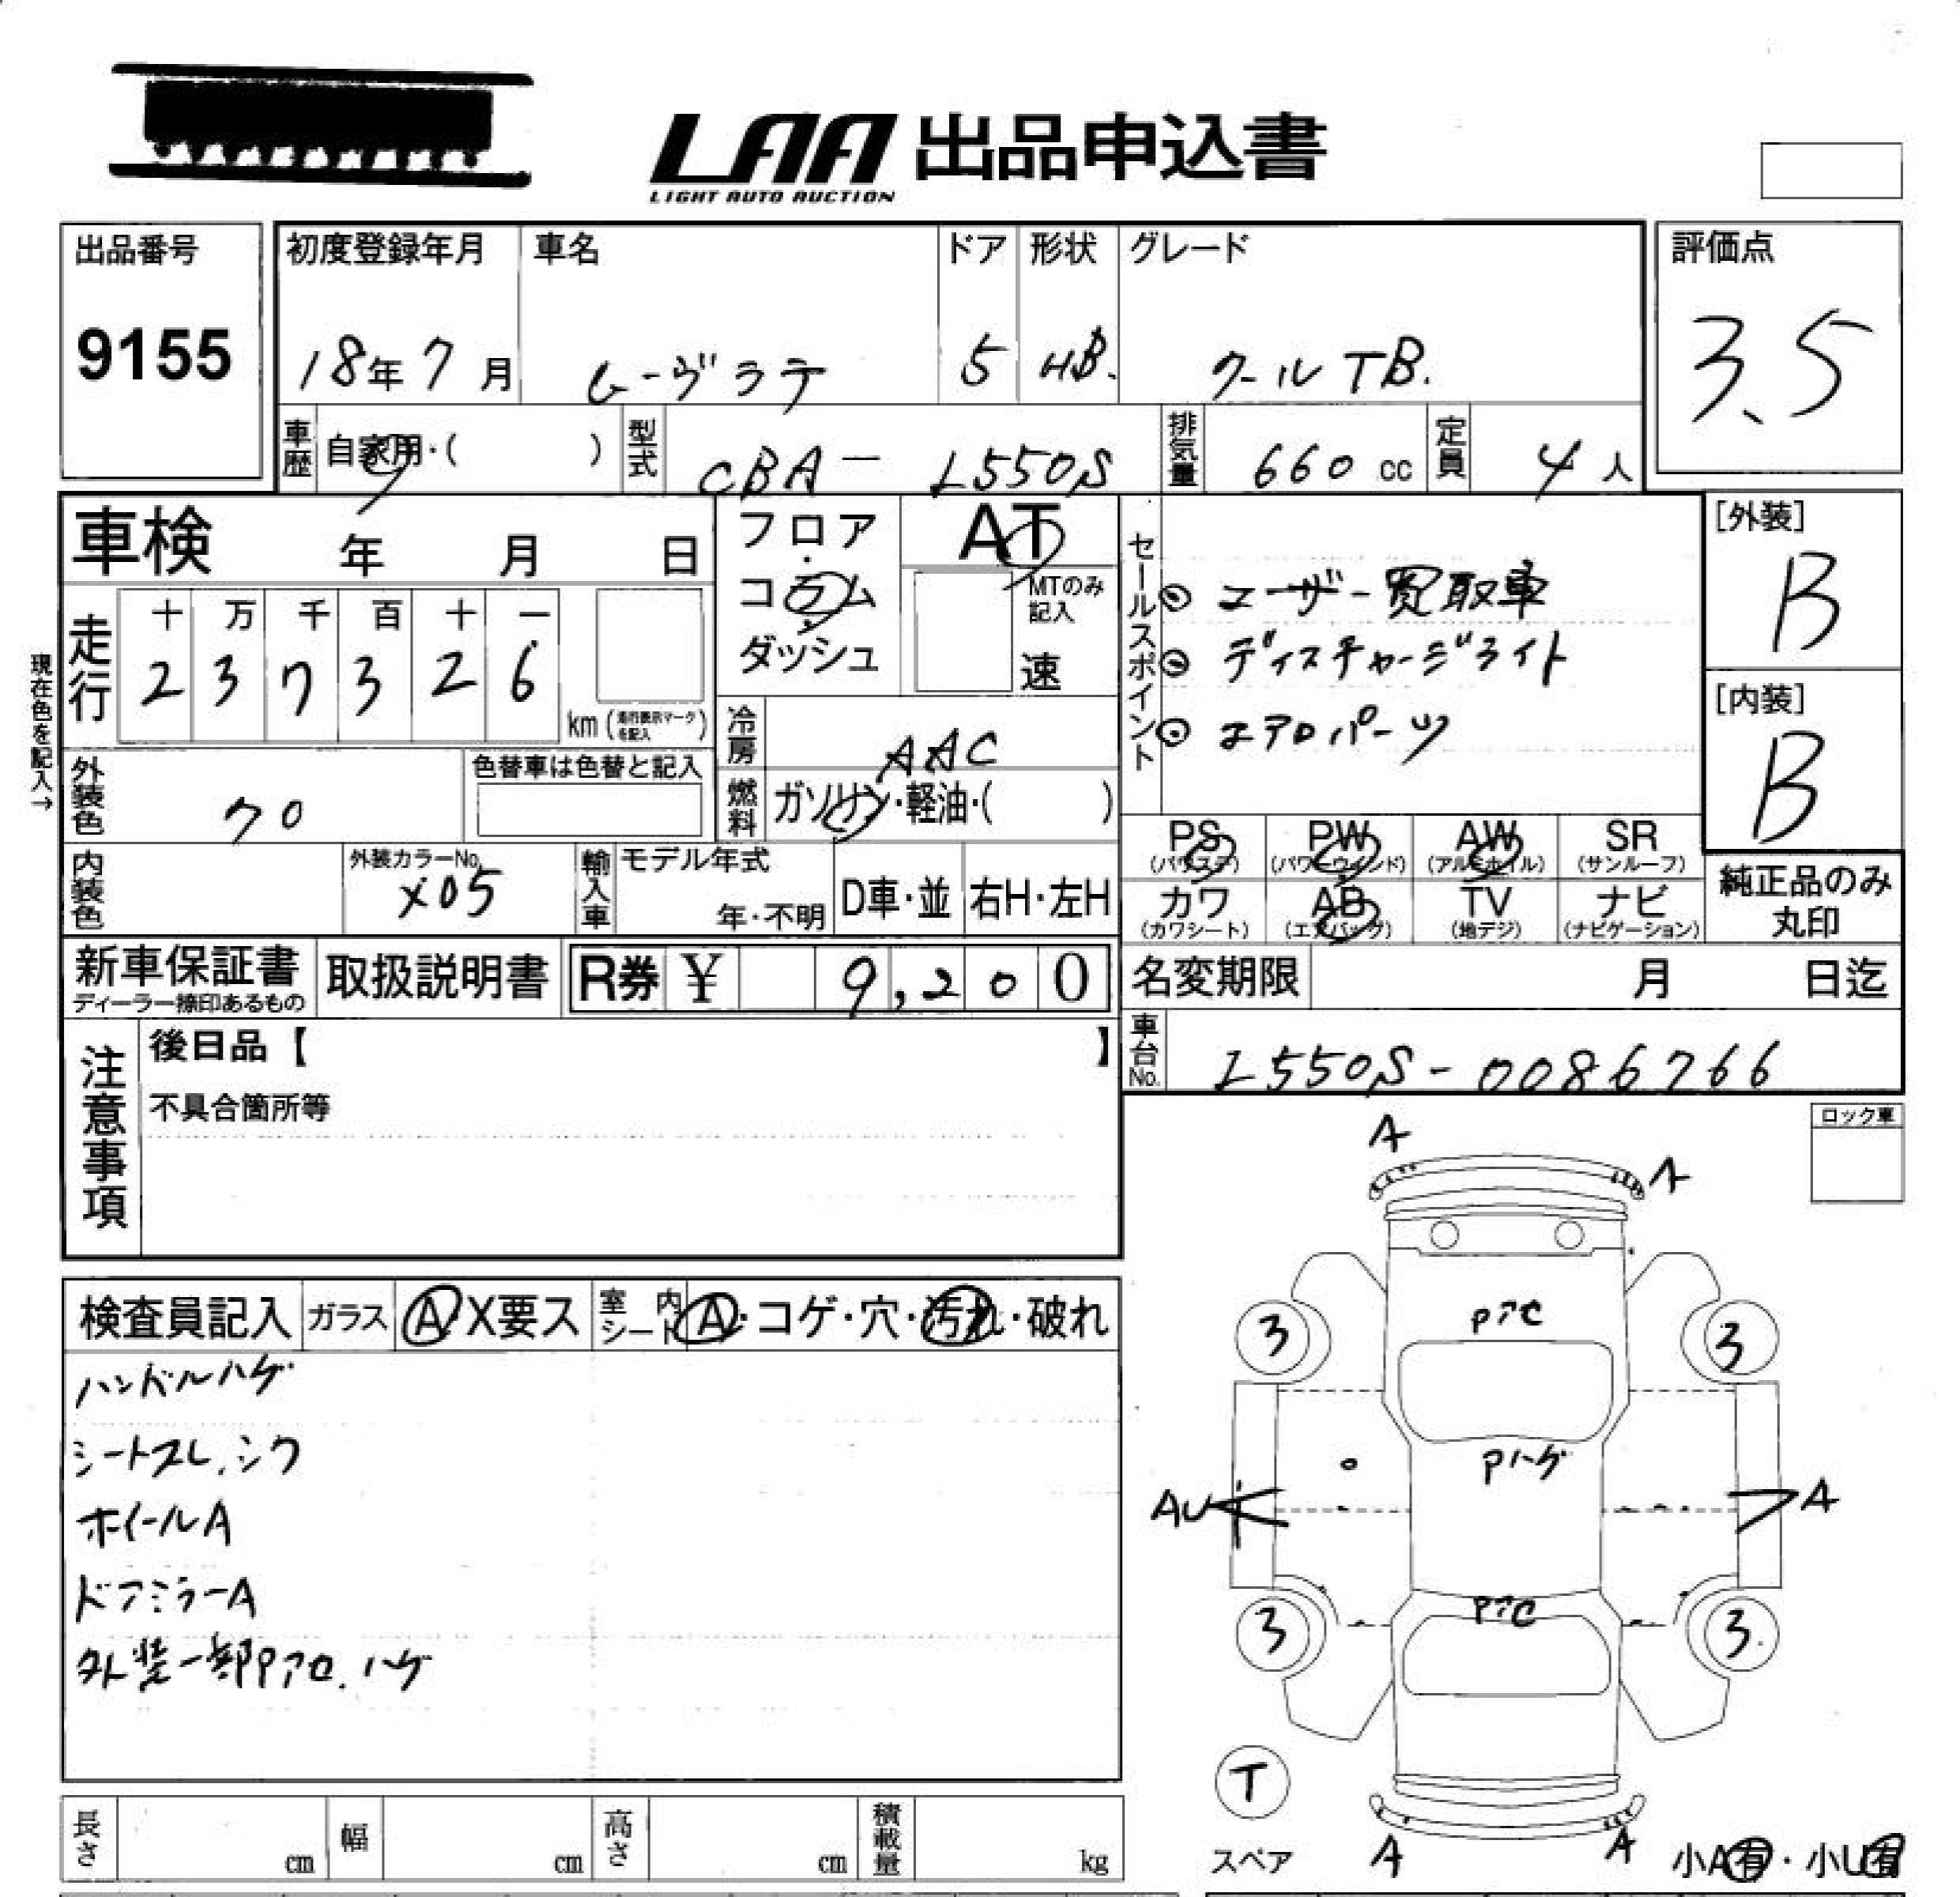 LAA 出品申込書
LIGHT AUTO AUCTION
出品番号
9155
初度登録年月
18年7月
車名
ムーヴラテ
ドア
5
形状
HB.
グレード
クールTB.
評価点
3.5
車歴
自家用・( )
型式
CBA - L550S
排気量
660 cc
定員
4人
車検 年 月 日
フロア・コラム・ダッシュ
AT
MTのみ記入
速
セールスポイント
ユーザー買取車
ディスチャージライト
エアロパーツ
[外装]
B
[内装]
B
現在色を記入→
走行
十 万 千 百 十 一
2 3 7 3 2 6
km (走行表示マークを記入)
冷房
AAC
燃料
ガソリン・軽油・( )
外装色
クロ
色替車は色替と記入
内装色
外装カラーNo.
X05
輸入車
モデル年式
年・不明
D車・並
右H・左H
PS
(パワステ)
PW
(パワーウィンド)
AW
(アルミホイル)
SR
(サンルーフ)
カワ
(カワシート)
AB
(エアバッグ)
TV
(地デジ)
ナビ
(ナビゲーション)
純正品のみ丸印
新車保証書
ディーラー捺印あるもの
取扱説明書
R券 ¥ 9,200
名変期限 月 日迄
車台No.
L550S-0086766
注意事項
後日品【 】
不具合箇所等
ロック車
検査員記入
ガラス
A・X要ス
室内シート
A・コゲ・穴・汚れ・破れ
ハンドルハゲ
シートスレ、シワ
ホイールA
ドアミラーA
外装一部Pアロ、ハゲ
A
A
3
PアC
3
Pハゲ
AU
A
3
PアC
3
T
スペア
A
A
小A有・小U有
長さ cm
幅 cm
高さ cm
積載量 kg